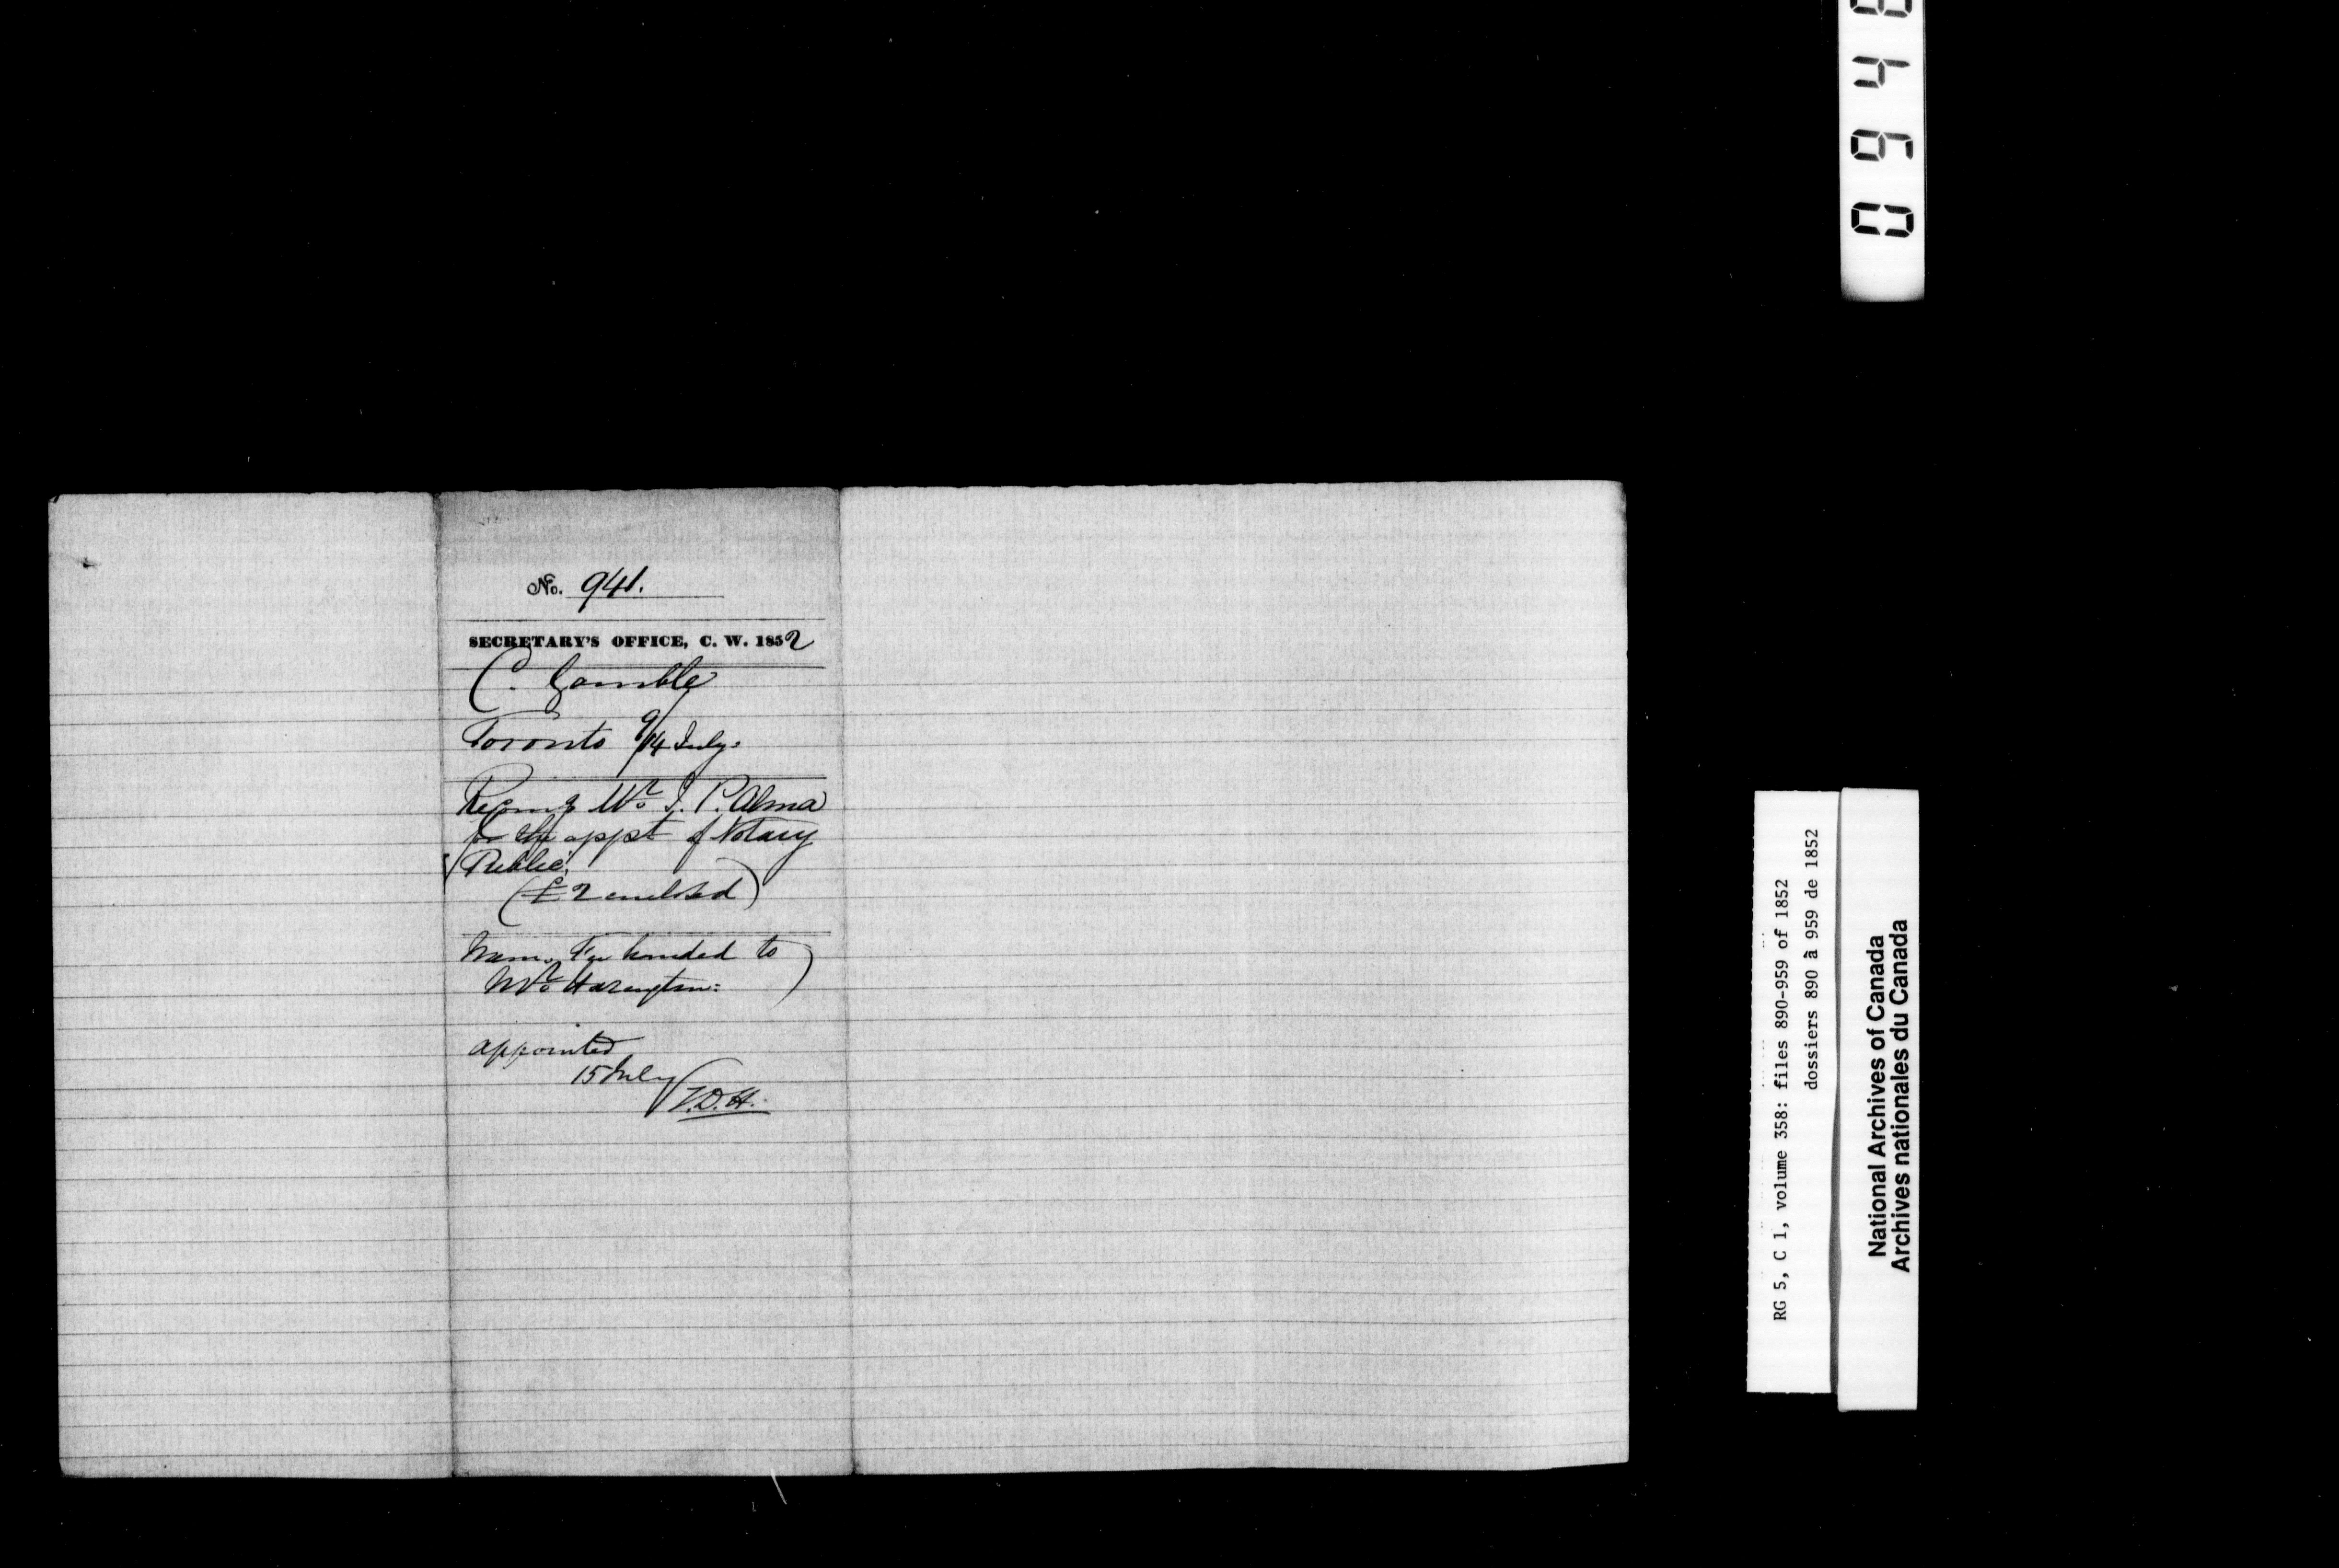 No. 941.
SECRETARY'S OFFICE, C. W. 1852
C. Gamble
Toronto 9/14 July.
Recomg Mr J. P. Alma
for the appt of Notary
Public.
(£2 enclosed)
Mem. Fee handed to
Mr Harington:
appointed
15 July
T.D.H.
0948
RG 5, C 1, volume 358: files 890-959 of 1852
dossiers 890 à 959 de 1852
National Archives of Canada
Archives nationales du Canada